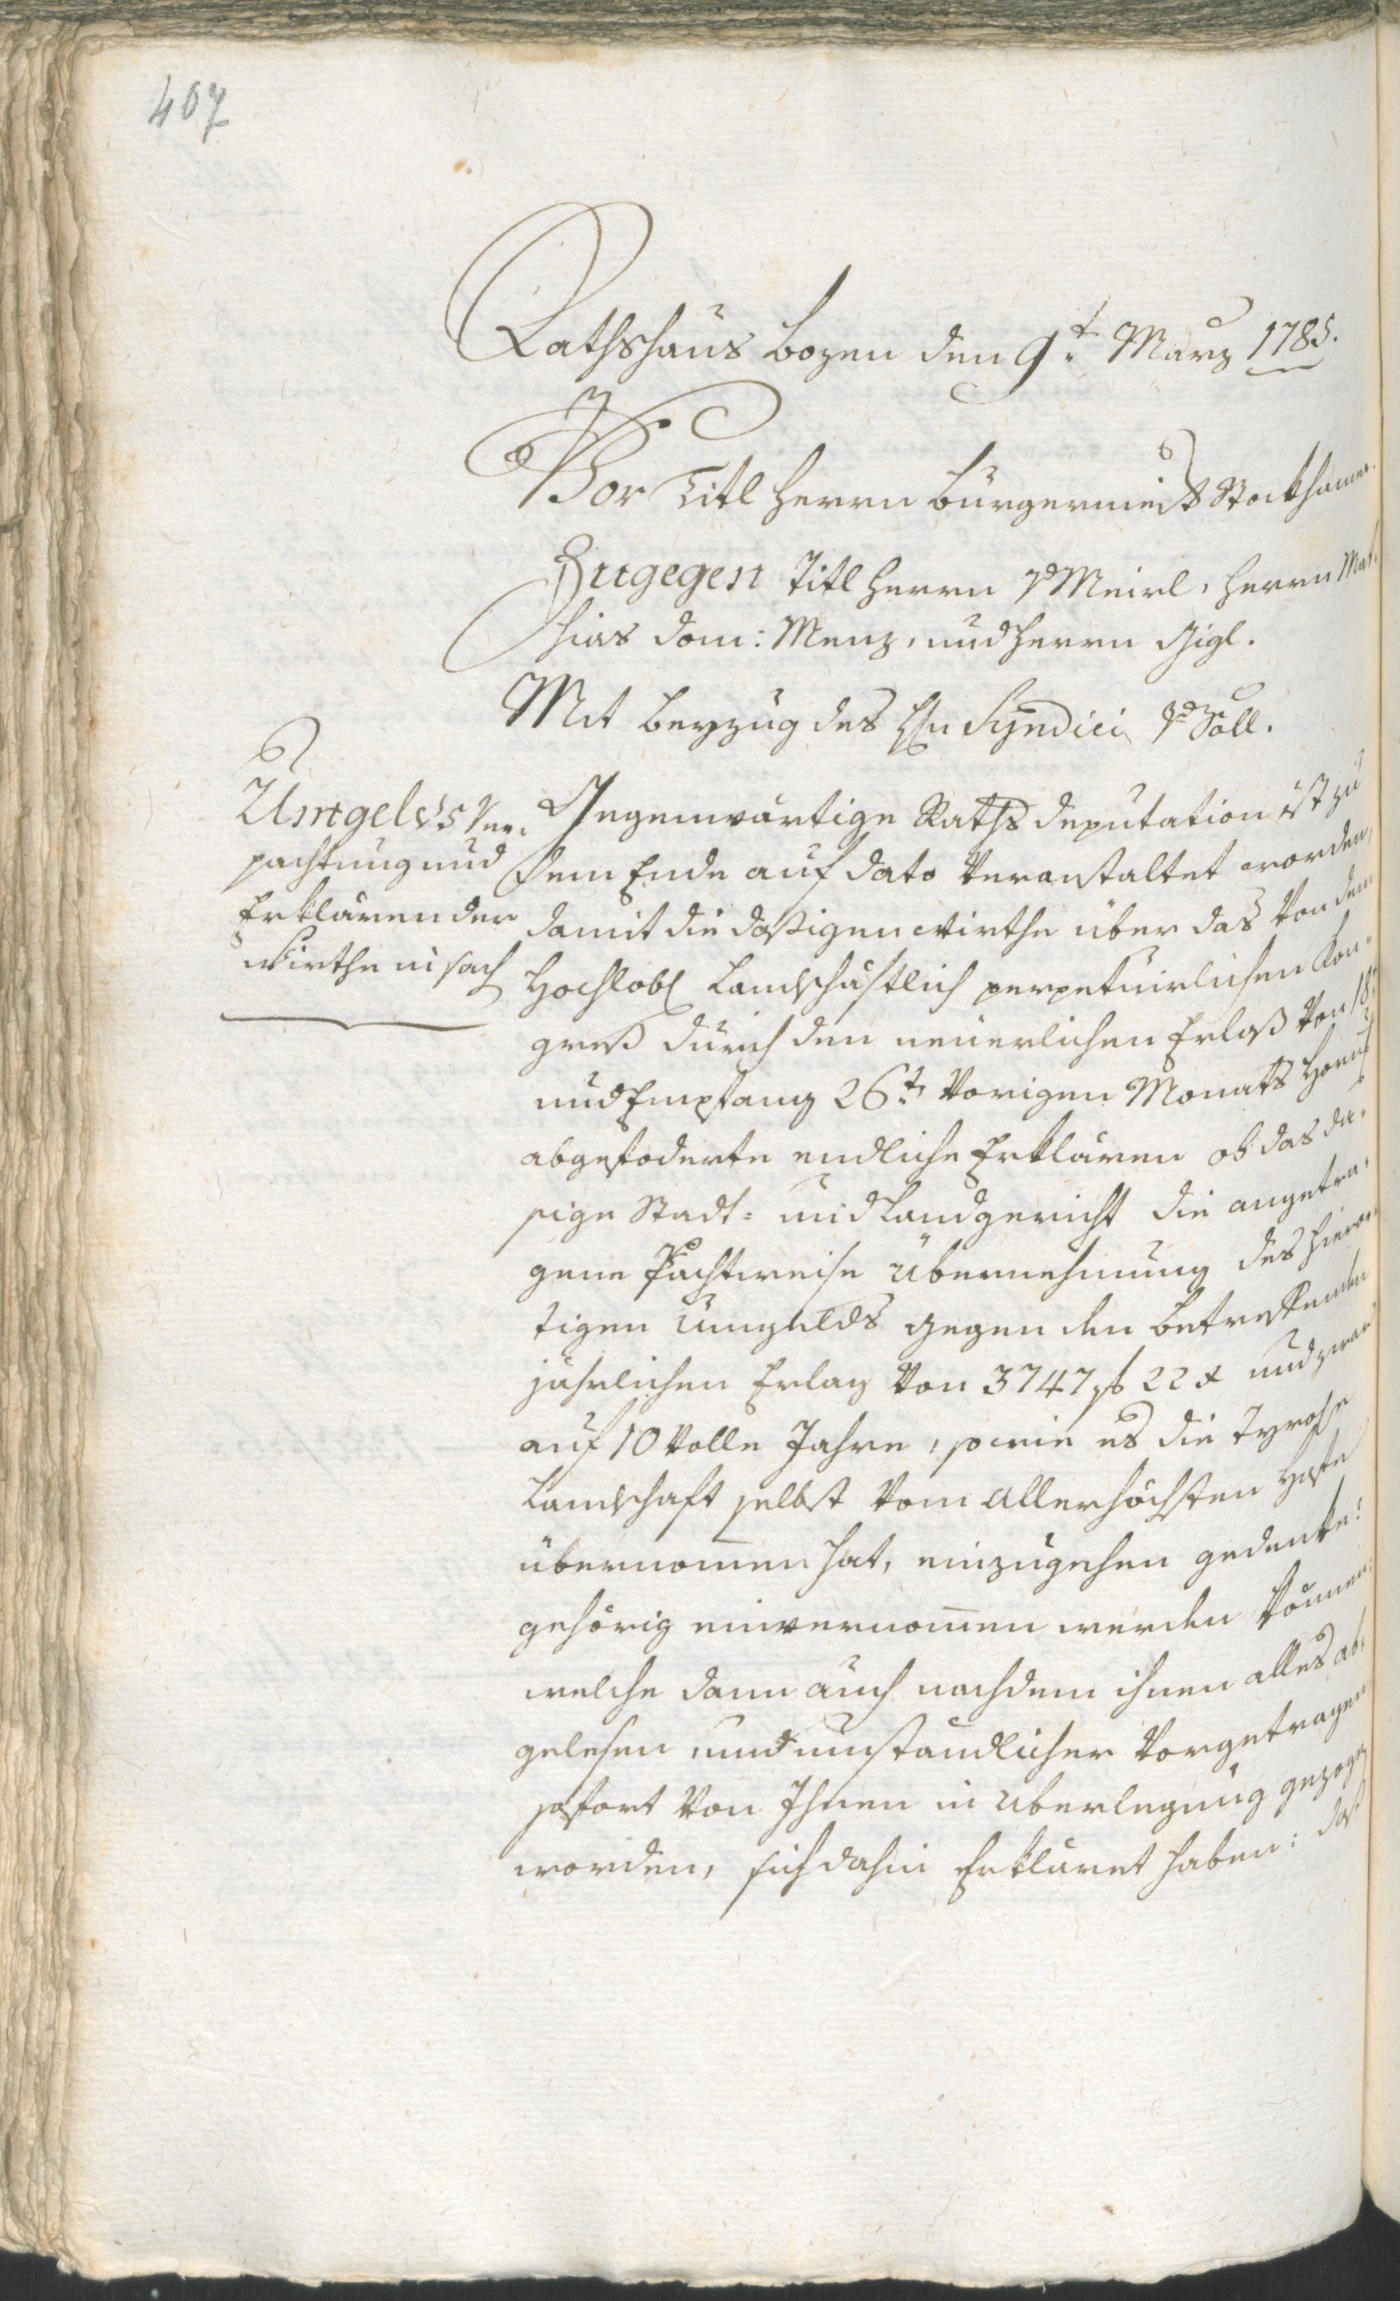 407
Rathshaus Bozen den 9.t März 1785.
Vor Titl Herrn Bürgermeist Stockhamer.
Zugegen Titl Herrn v Meirl, Herrn Mat¬
hias Dom: Menz, und Herrn Gigl.
Mit beyzug des H[er]n Syndici Dr Söll.
Umgelds Ver¬
pachtung und
Erklären der
Wirthe in sach
Gegenwärtige Raths deputation ist zu
dem Ende auf dato veranstaltet worden,
damit die dasigen wirthe über das von dem
Hochlobl Landschäftlich perpetuirlichen Kon¬
greß durch den neuerlichen Erlaß von 18t
und Empfang 26.t vorigen Monats Horn
abgefoderte endliche Erklären ob das da¬
sige Stadt= und Landgericht die angetra¬
gene Pachtweise übernehmung des hieror¬
tigen Umgelds gegen den betreffenden
jährlichen Erlag von 3747 f 22 x und zwar
auf 10 volle Jahre, so wie es die Tyrolse
Landschaft selbst vom allerhöchsten Hofe
übernomen hat, einzugehen gedenke?
gehörig einvernomen werden können:
welche dann auch nachdem ihnen alles ab¬
gelesen und umständlicher vorgetragen
sofort von Ihnen in Überlegung gezogen
worden, sich dahin Erkläret haben: daß